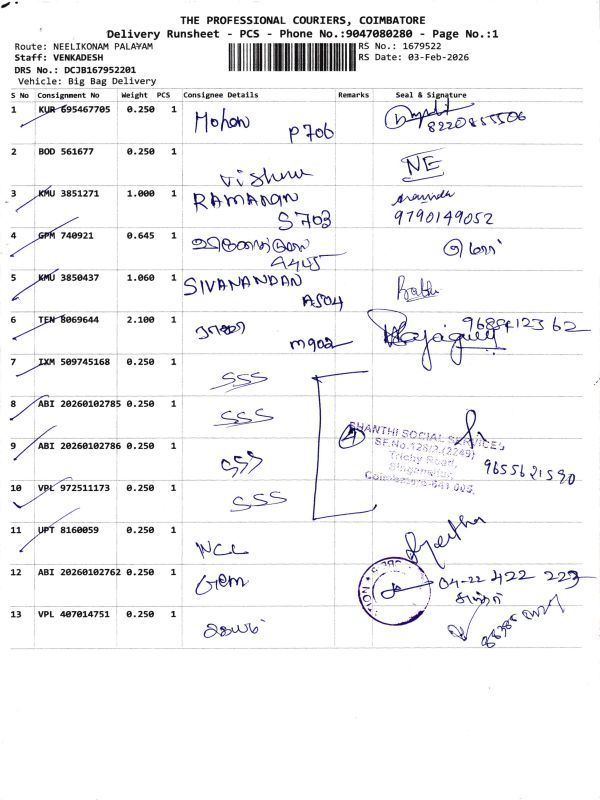 THE PROFESSIONAL COURIERS, COIMBATORE
Delivery Runsheet - PCS - Phone No.:9047080280 - Page No.:1
Route: NEELIKONAM PALAYAM
RS No.: 1679522
Staff: VENKADESH
RS Date: 03-Feb-2026
DRS No.: DCJB167952201
Vehicle: Big Bag Delivery
S No Consignment No Weight PCS Consignee Details Remarks Seal & Signature
1 KUR 695467705 0.250 1 Mohan P706
8220855506
2 BOD 561677 0.250 1 Vishnu NE
3 KMU 3851271 1.000 1 RAMANAN S703
9790149052
4 GPM 740921 0.645 1 A445
5 KMU 3850437 1.060 1 SIVANANDAN A504 Babu
6 TEN 8069644 2.100 1 M902 9688412362
7 IXM 509745168 0.250 1 SSS
8 ABI 20260102785 0.250 1 SSS
9 ABI 20260102786 0.250 1 SSS
4
SHANTHI SOCIAL SERVICES
SF.No.128/2,(2249)
Trichy Road,
Singanallur,
Coimbatore-641 005.
9655621590
10 VPL 972511173 0.250 1 SSS
11 UPT 8160059 0.250 1 NCC
12 ABI 20260102762 0.250 1 GEM 04-22 422 223
13 VPL 407014751 0.250 1